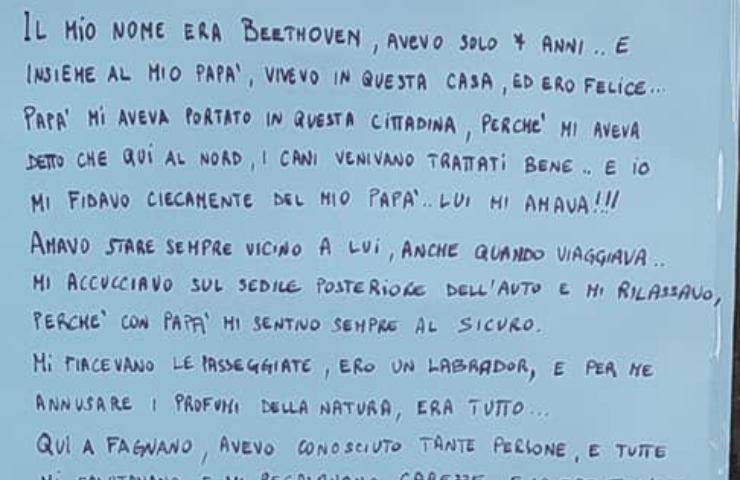 IL MIO NOME ERA BEETHOVEN, AVEVO SOLO 4 ANNI.. E
INSIEME AL MIO PAPA', VIVEVO IN QUESTA CASA, ED ERO FELICE...
PAPA' MI AVEVA PORTATO IN QUESTA CITTADINA, PERCHE' MI AVEVA
DETTO CHE QUI AL NORD, I CANI VENIVANO TRATTATI BENE.. E IO
MI FIDAVO CIECAMENTE DEL MIO PAPA'.. LUI MI AMAVA!!!
AMAVO STARE SEMPRE VICINO A LUI, ANCHE QUANDO VIAGGIAVA..
MI ACCUCCIAVO SUL SEDILE POSTERIORE DELL'AUTO E MI RILASSAVO,
PERCHE' CON PAPA' MI SENTIVO SEMPRE AL SICURO.
MI PIACEVANO LE PASSEGGIATE, ERO UN LABRADOR, E PER ME
ANNUSARE I PROFUMI DELLA NATURA, ERA TUTTO...
QUI A FAGNANO, AVEVO CONOSCIUTO TANTE PERSONE, E TUTTE
MI E MI REGALAVANO CAREZZE